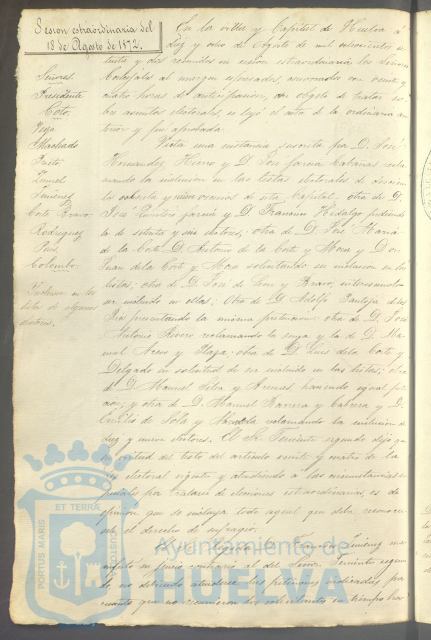 Sesion estraordinaria del
18 de Agosto de 1872.
Señores.
Presidente
Coto
Vega
Machado
Jimenez
Corte Bravo
Rodriguez
Colombo
Inclusion en las
listas de algunos
electores.
En la villa y Capital de Huelva á
diez y ocho de Agosto de mil ochocientos se
tenta y dos reunidos en sesion estraordinaria los Señores
Concejales al margen espresados, convocados con veinte y
cuatro horas de anticipacion, con objeto de tratar so
bre asuntos electorales, se leyó el acta de la ordinaria an
terior y fue aprobada.
Vista una instancia suscrita por D. José
Hernandez Hierro y D. José Garcia Cabañas recla
mando la inclusion en las listas electorales de
vecinos de esta Capital; otra de D.
José Garcia y D. Francisco Hidalgo pidiendo
la de setenta y seis electores; otra de D. José Maria
de la Corte, D. Antonio de la Corte y Mora y Don
Juan de la Corte y Mora solicitando su inclusion en las
listas; otra de D. José de Leon y Bravo, interesando
ser incluido en ellas; Otra de D. Adolfo Pantoja de la
presentando la misma pretension; otra de D. José
Antonio Rivero reclamando la suya y la de D. Ma
nuel y Plaza; otra de D. Luis de la Corte y
Delgado en solicitud de ser incluido en las listas; otra
de D. Manuel Silva y haciendo igual pe
ticion; y otra de D. Manuel Barrera y Cabrera y D.
Emilio de Sola y reclamando la inclusion de
diez y nueve electores. El Sr. Teniente segundo dijo que
en virtud del testo del articulo veinte y cuatro de la
ley electoral vigente y atendiendo á las circunstancias es
peciales por tratarse de elecciones estraordinarias, es de
opinion que se incluya todo aquel que deba reconocer
sele el derecho de sufragio.
Jimenez ma
nifestó su juicio contrario al del Señor Teniente segun
do no debiendo atenderse las peticiones indicadas por
cuanto que no reunieron los solicitantes en tiempo
PORTUS MARIS ET TERRÆ CUSTODIA
Ayuntamiento de
HUELVA